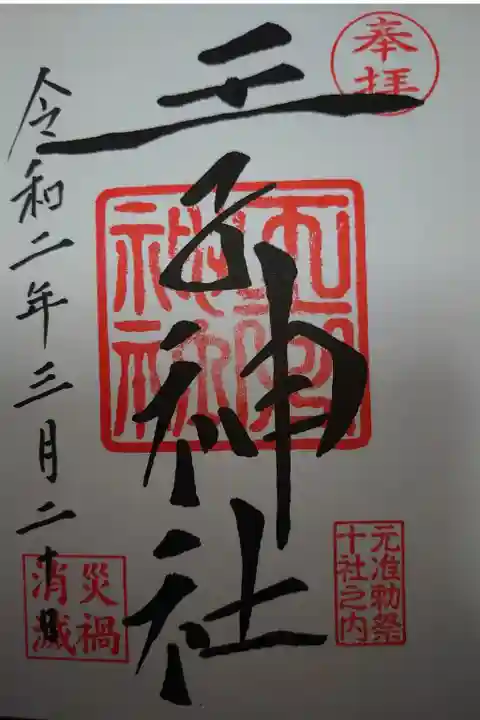 奉拝
王子神社
元准勅祭
十社之内
災禍
消滅
令和二年三月二十日